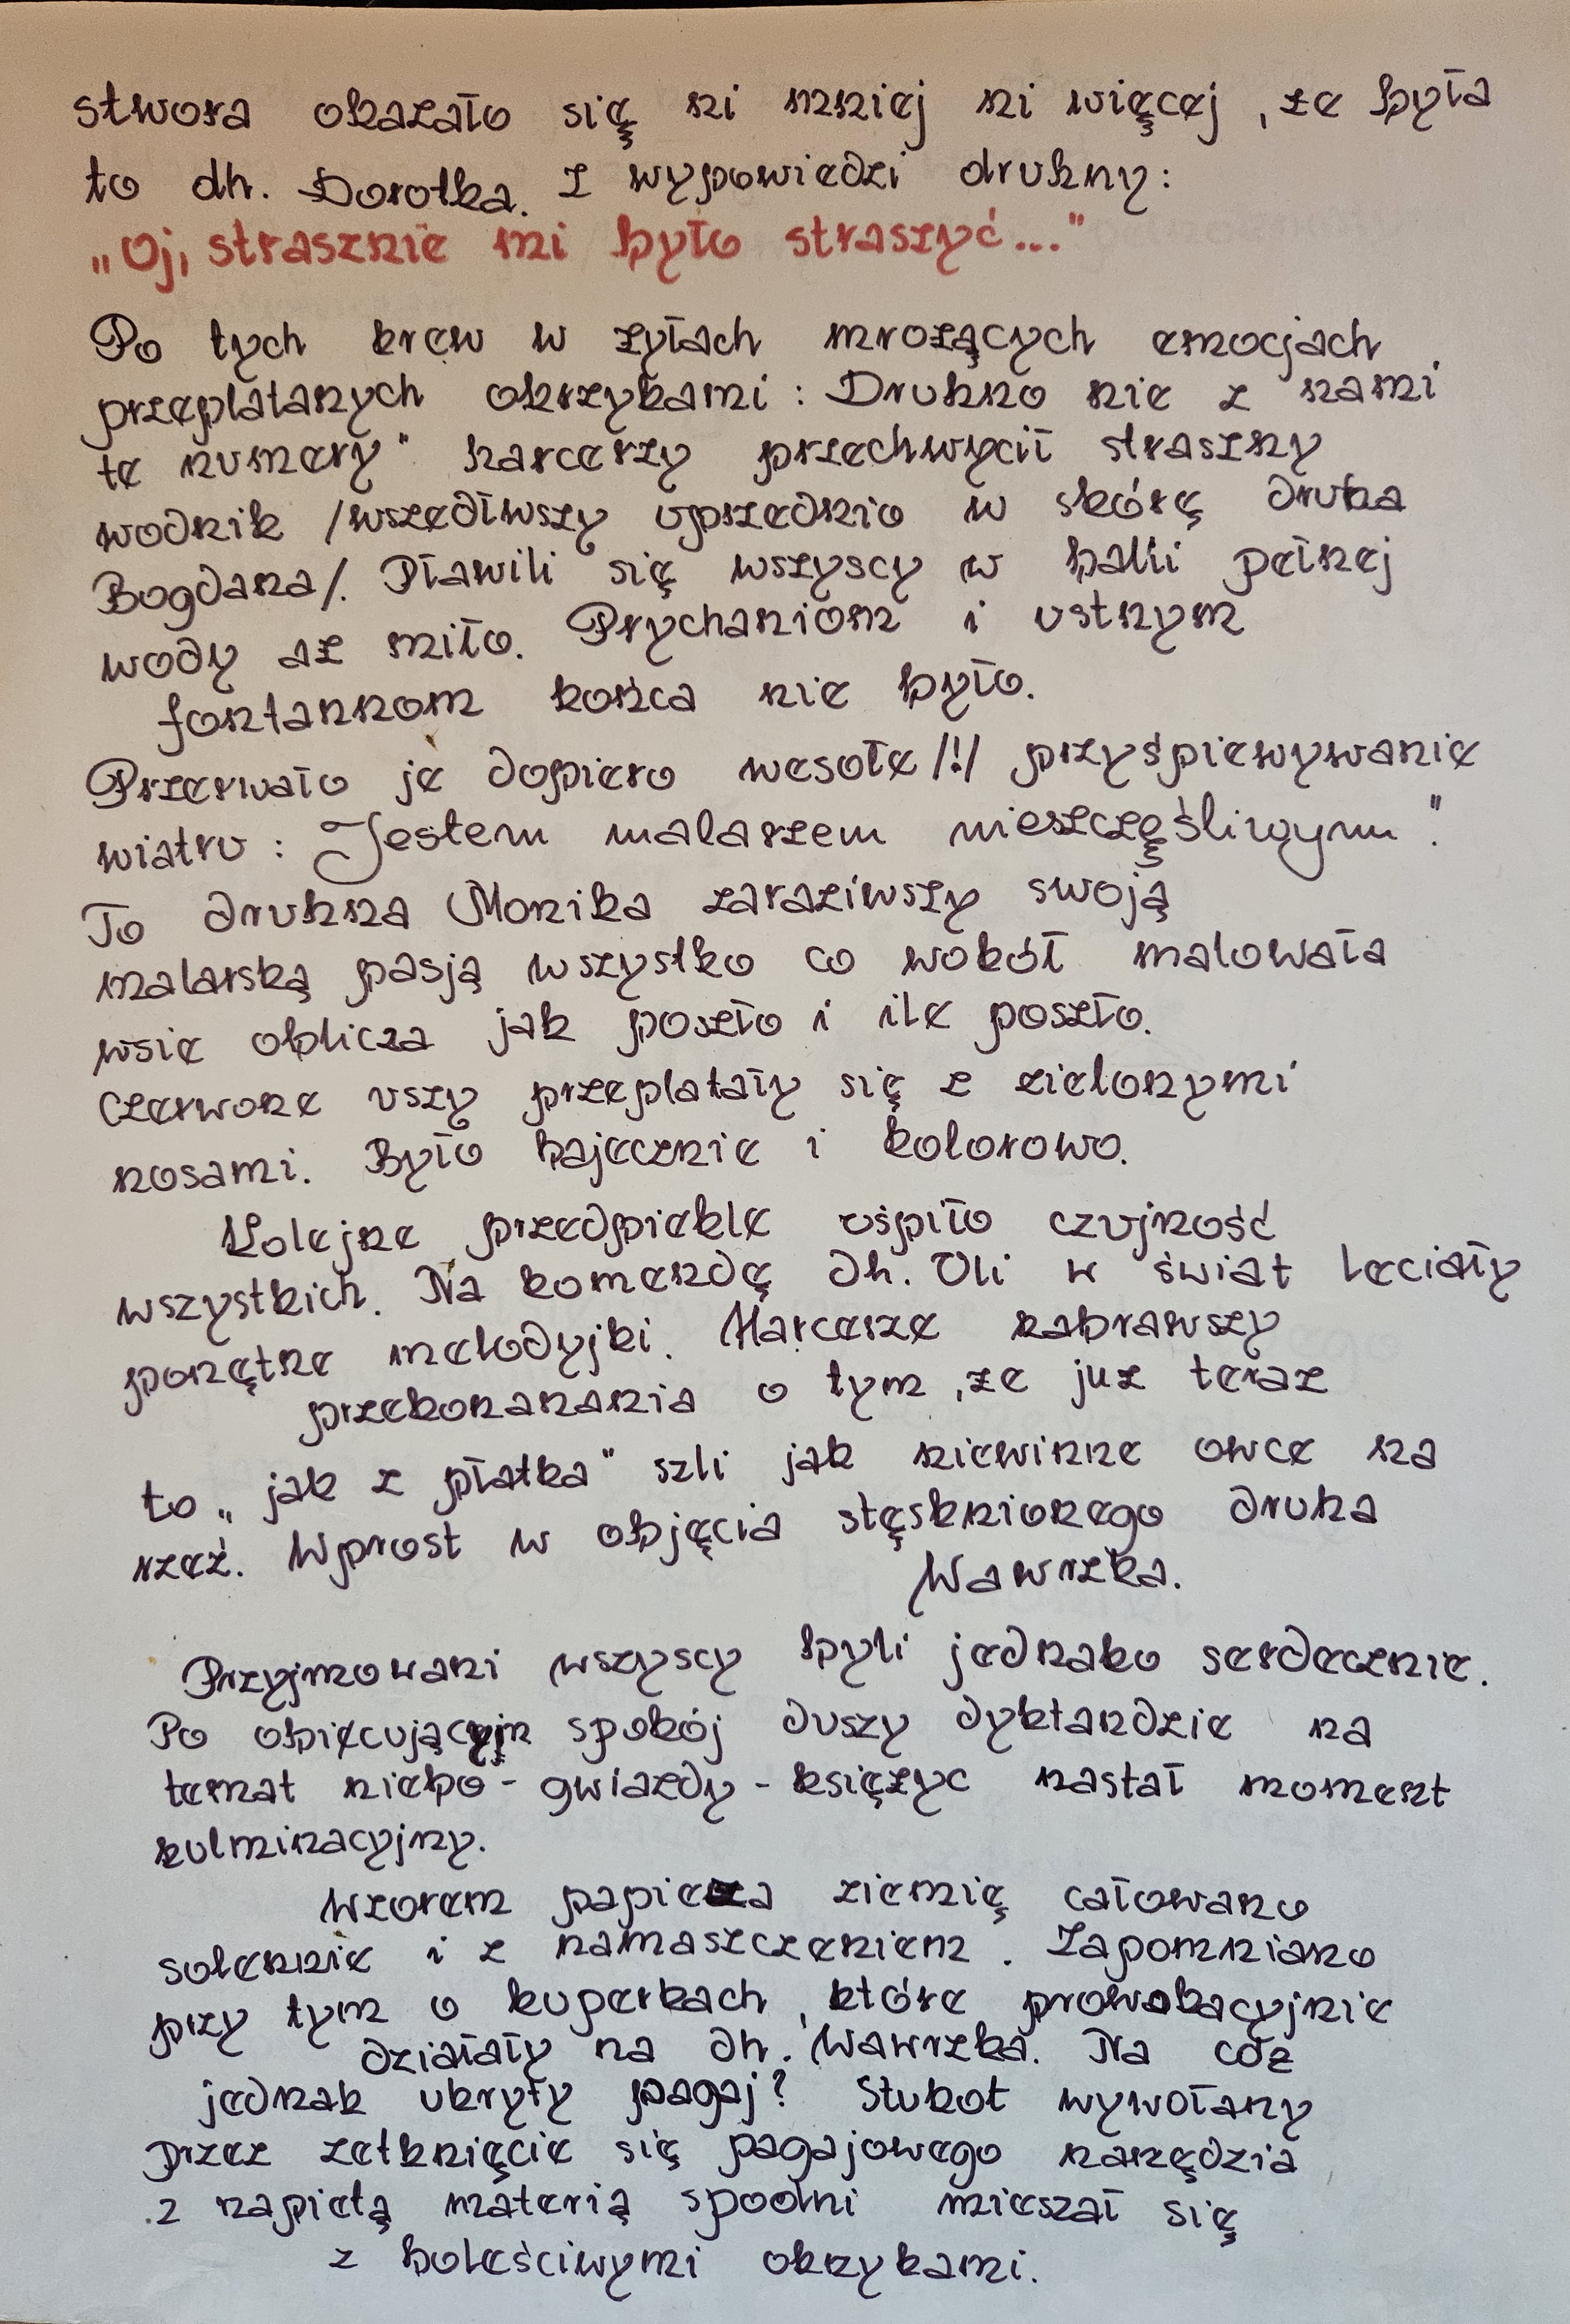 stwora okazało się ni mniej ni więcej, że była
to dh. Dorotka. Z wypowiedzi druhny:
„Oj, strasznie mi było straszyć..."
Po tych krew w żyłach mrożących emocjach
przeplatanych okrzykami: Druhno nie z nami
te numery" harcerzy przechwycił straszny
wodnik /wszedłwszy uprzednio w skórę druha
Bogdana/. Pławili się wszyscy w balii pełnej
wody aż miło. Prychaniom i ustnym
fontannom końca nie było.
Przerwało je dopiero wesołe /!/ przyśpiewywanie
wiatru: Jestem malarzem nieszczęśliwym".
To druhna Monika zaraziwszy swoją
malarską pasją wszystko co wokół malowała
wsie oblicza jak poszło i ile poszło.
Czerwone uszy przeplatały się z zielonymi
nosami. Było bajecznie i kolorowo.
Kolejne przedpiekle uśpiło czujność
wszystkich. Na komendę dh. Uli w świat leciały
ponętne melodyjki. Harcerze nabrawszy
przekonanania o tym, że już teraz
to „jak z płatka" szli jak niewinne owce na
rzeź. Wprost w objęcia stęsknionego druha
Wawrzka.
Przyjmowani wszyscy byli jednako serdecznie.
Po obiecującym spokój duszy dyktandzie na
temat niebo - gwiazdy - księżyc nastał moment
kulminacyjny.
Wzorem papieża ziemię całowano
solennie i z namaszczeniem. Zapomniano
przy tym o kuperkach, które prowokacyjnie
działały na dh. Wawrzka. Na cóż
jednak ukryty pagaj? Stukot wywołany
przez zetknięcie się pagajowego narzędzia
z napiętą materią spodni mieszał się
z boleściwymi okrzykami.